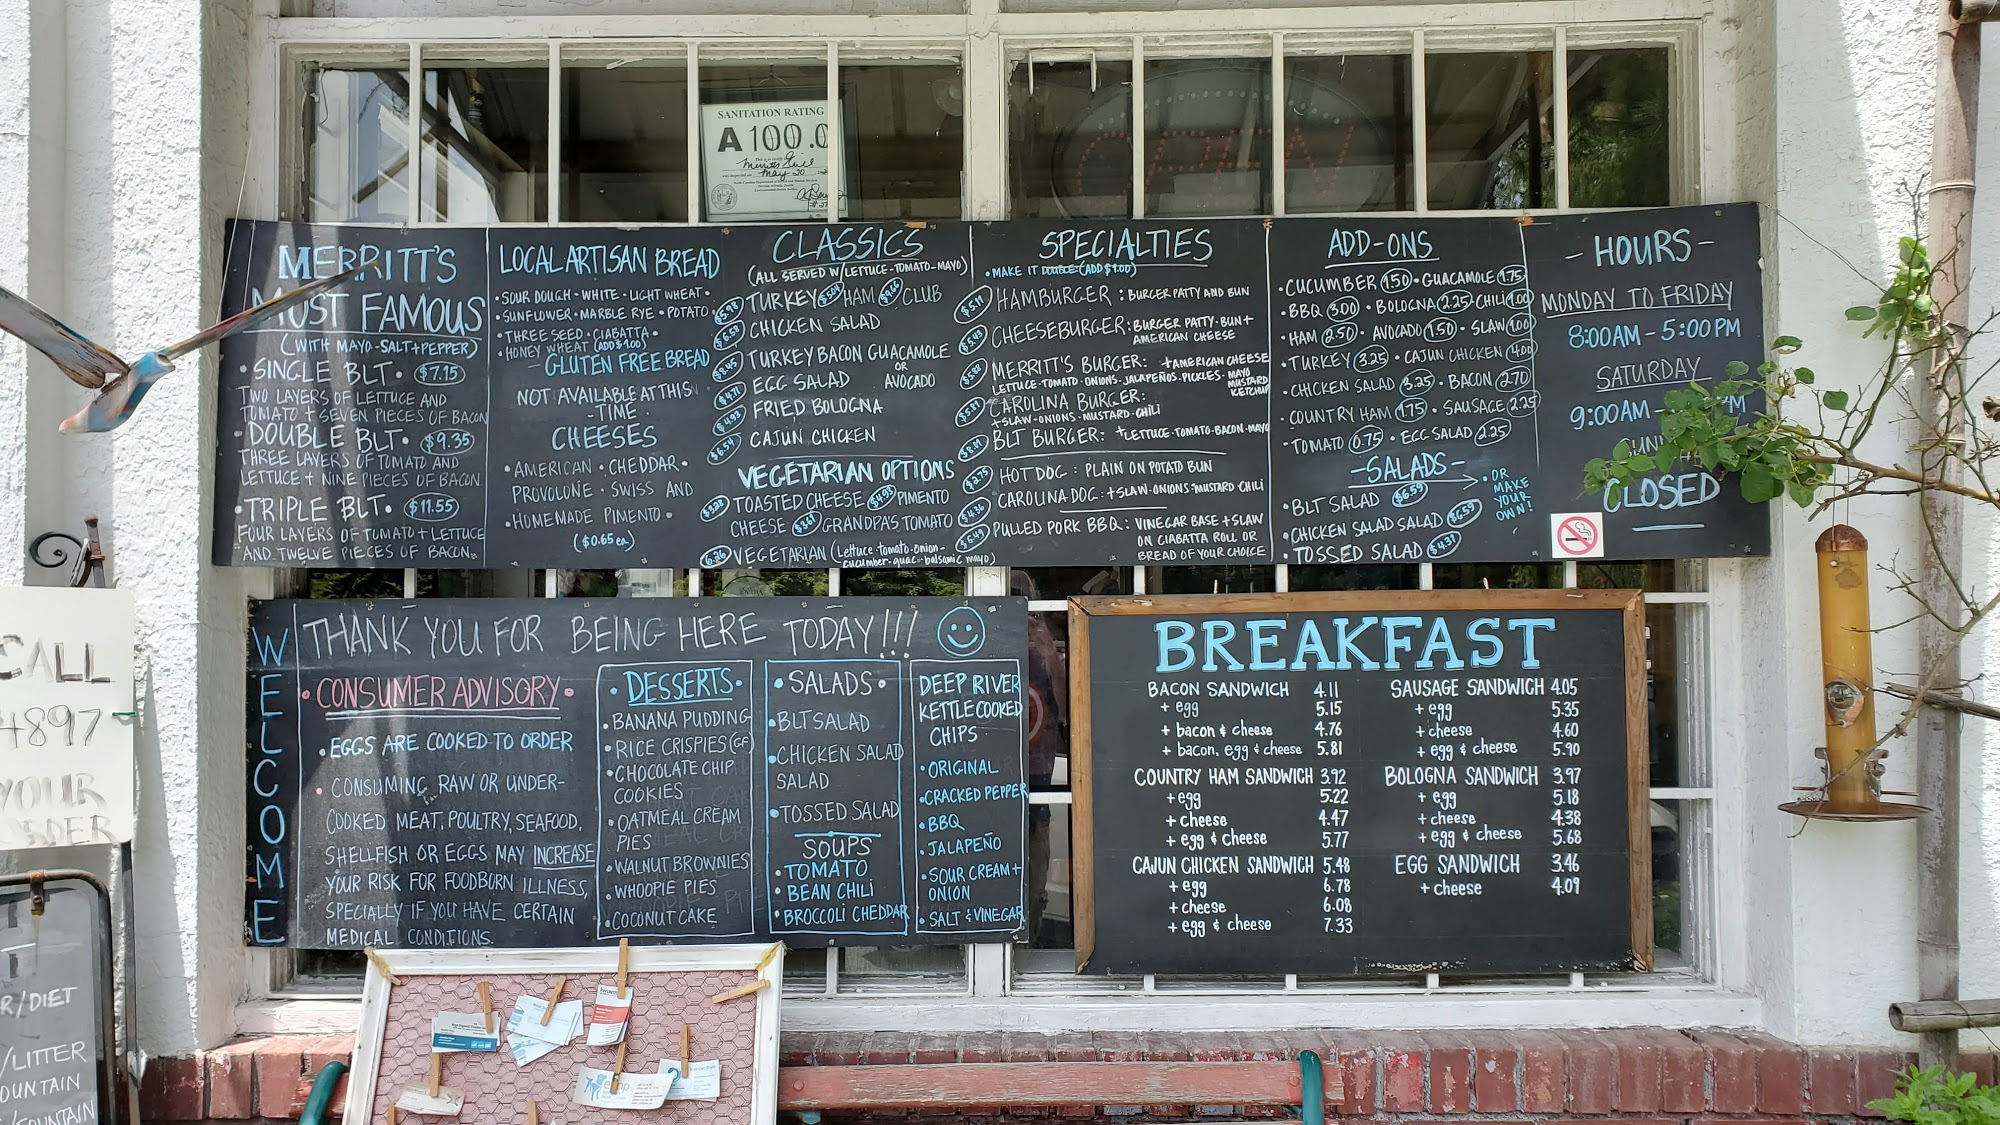 SANITATION RATING
A 100.0
May 20
MERRITT'S
MOST FAMOUS
(WITH MAYO-SALT+PEPPER)
• SINGLE BLT • $7.15
TWO LAYERS OF LETTUCE AND
TOMATO + SEVEN PIECES OF BACON
• DOUBLE BLT • $9.35
THREE LAYERS OF TOMATO AND
LETTUCE + NINE PIECES OF BACON
• TRIPLE BLT • $11.55
FOUR LAYERS OF TOMATO + LETTUCE
AND TWELVE PIECES OF BACON
LOCAL ARTISAN BREAD
• SOUR DOUGH • WHITE • LIGHT WHEAT •
• SUNFLOWER • MARBLE RYE • POTATO
• THREE SEED • CIABATTA •
• HONEY WHEAT (ADD $1.00)
- GLUTEN FREE BREAD
NOT AVAILABLE AT THIS
- TIME -
CHEESES
• AMERICAN • CHEDDAR •
PROVOLONE • SWISS AND
• HOMEMADE PIMENTO •
($0.65 ea.)
CLASSICS
(ALL SERVED W/LETTUCE-TOMATO-MAYO)
$5.98 TURKEY $5.04 HAM $9.66 CLUB
$6.58 CHICKEN SALAD
$8.45 TURKEY BACON GUACAMOLE
OR
AVOCADO
$4.71 EGG SALAD
$4.93 FRIED BOLOGNA
$6.54 CAJUN CHICKEN
VEGETARIAN OPTIONS
$3.22 TOASTED CHEESE $4.93 PIMENTO
CHEESE $3.61 GRANDPA'S TOMATO
6.26 VEGETARIAN (Lettuce-tomato-onion-
cucumber-guac-balsamic mayo)
SPECIALTIES
• MAKE IT DOUBLE (ADD $1.00)
$5.11 HAMBURGER : BURGER PATTY AND BUN
$5.45 CHEESEBURGER: BURGER PATTY • BUN +
AMERICAN CHEESE
$5.88 MERRITT'S BURGER: +AMERICAN CHEESE
LETTUCE • TOMATO • ONIONS • JALAPEÑOS • PICKLES • MAYO
MUSTARD
KETCHUP
$5.81 CAROLINA BURGER:
+ SLAW-ONIONS-MUSTARD-CHILI
$8.89 BLT BURGER: +LETTUCE-TOMATO-BACON-MAYO
$2.75 HOT DOG : PLAIN ON POTATO BUN
$4.36 CAROLINA DOG: +SLAW-ONIONS-MUSTARD-CHILI
$5.49 PULLED PORK BBQ : VINEGAR BASE + SLAW
ON CIABATTA ROLL OR
BREAD OF YOUR CHOICE
ADD-ONS
• CUCUMBER 1.50 • GUACAMOLE 1.75
• BBQ 3.00 • BOLOGNA 2.25 • CHILI 1.00
• HAM 2.50 • AVOCADO 1.50 • SLAW 1.00
• TURKEY 3.25 • CAJUN CHICKEN 4.00
• CHICKEN SALAD 3.25 • BACON 2.70
• COUNTRY HAM 1.75 • SAUSAGE 2.25
• TOMATO 0.75 • EGG SALAD 2.25
- SALADS -
• BLT SALAD $6.59
• CHICKEN SALAD SALAD $6.59
• TOSSED SALAD $4.31
• OR
MAKE
YOUR
OWN!
- HOURS -
MONDAY TO FRIDAY
8:00AM - 5:00PM
SATURDAY
9:00AM - PM
CLOSED
WELCOME
THANK YOU FOR BEING HERE TODAY!!!
• CONSUMER ADVISORY •
• EGGS ARE COOKED TO ORDER
• CONSUMING RAW OR UNDER-
COOKED MEAT, POULTRY, SEAFOOD,
SHELLFISH OR EGGS MAY INCREASE
YOUR RISK FOR FOODBORN ILLNESS,
SPECIALLY IF YOU HAVE CERTAIN
MEDICAL CONDITIONS.
• DESSERTS •
• BANANA PUDDING
• RICE CRISPIES (GF)
• CHOCOLATE CHIP
COOKIES
• OATMEAL CREAM
PIES
• WALNUT BROWNIES
• WHOOPIE PIES
• COCONUT CAKE
• SALADS •
• BLT SALAD
• CHICKEN SALAD
SALAD
• TOSSED SALAD
SOUPS
• TOMATO
• BEAN CHILI
• BROCCOLI CHEDDAR
DEEP RIVER
KETTLE COOKED
CHIPS •
• ORIGINAL
• CRACKED PEPPER
• BBQ
• JALAPEÑO
• SOUR CREAM +
ONION
• SALT & VINEGAR
BREAKFAST
BACON SANDWICH 4.11
+ egg 5.15
+ bacon & cheese 4.76
+ bacon, egg & cheese 5.81
COUNTRY HAM SANDWICH 3.92
+ egg 5.22
+ cheese 4.47
+ egg & cheese 5.77
CAJUN CHICKEN SANDWICH 5.48
+ egg 6.78
+ cheese 6.08
+ egg & cheese 7.33
SAUSAGE SANDWICH 4.05
+ egg 5.35
+ cheese 4.60
+ egg & cheese 5.90
BOLOGNA SANDWICH 3.97
+ egg 5.18
+ cheese 4.38
+ egg & cheese 5.68
EGG SANDWICH 3.46
+ cheese 4.09
CALL
4897
YOUR
ORDER
R/DIET
/LITTER
OUNTAIN